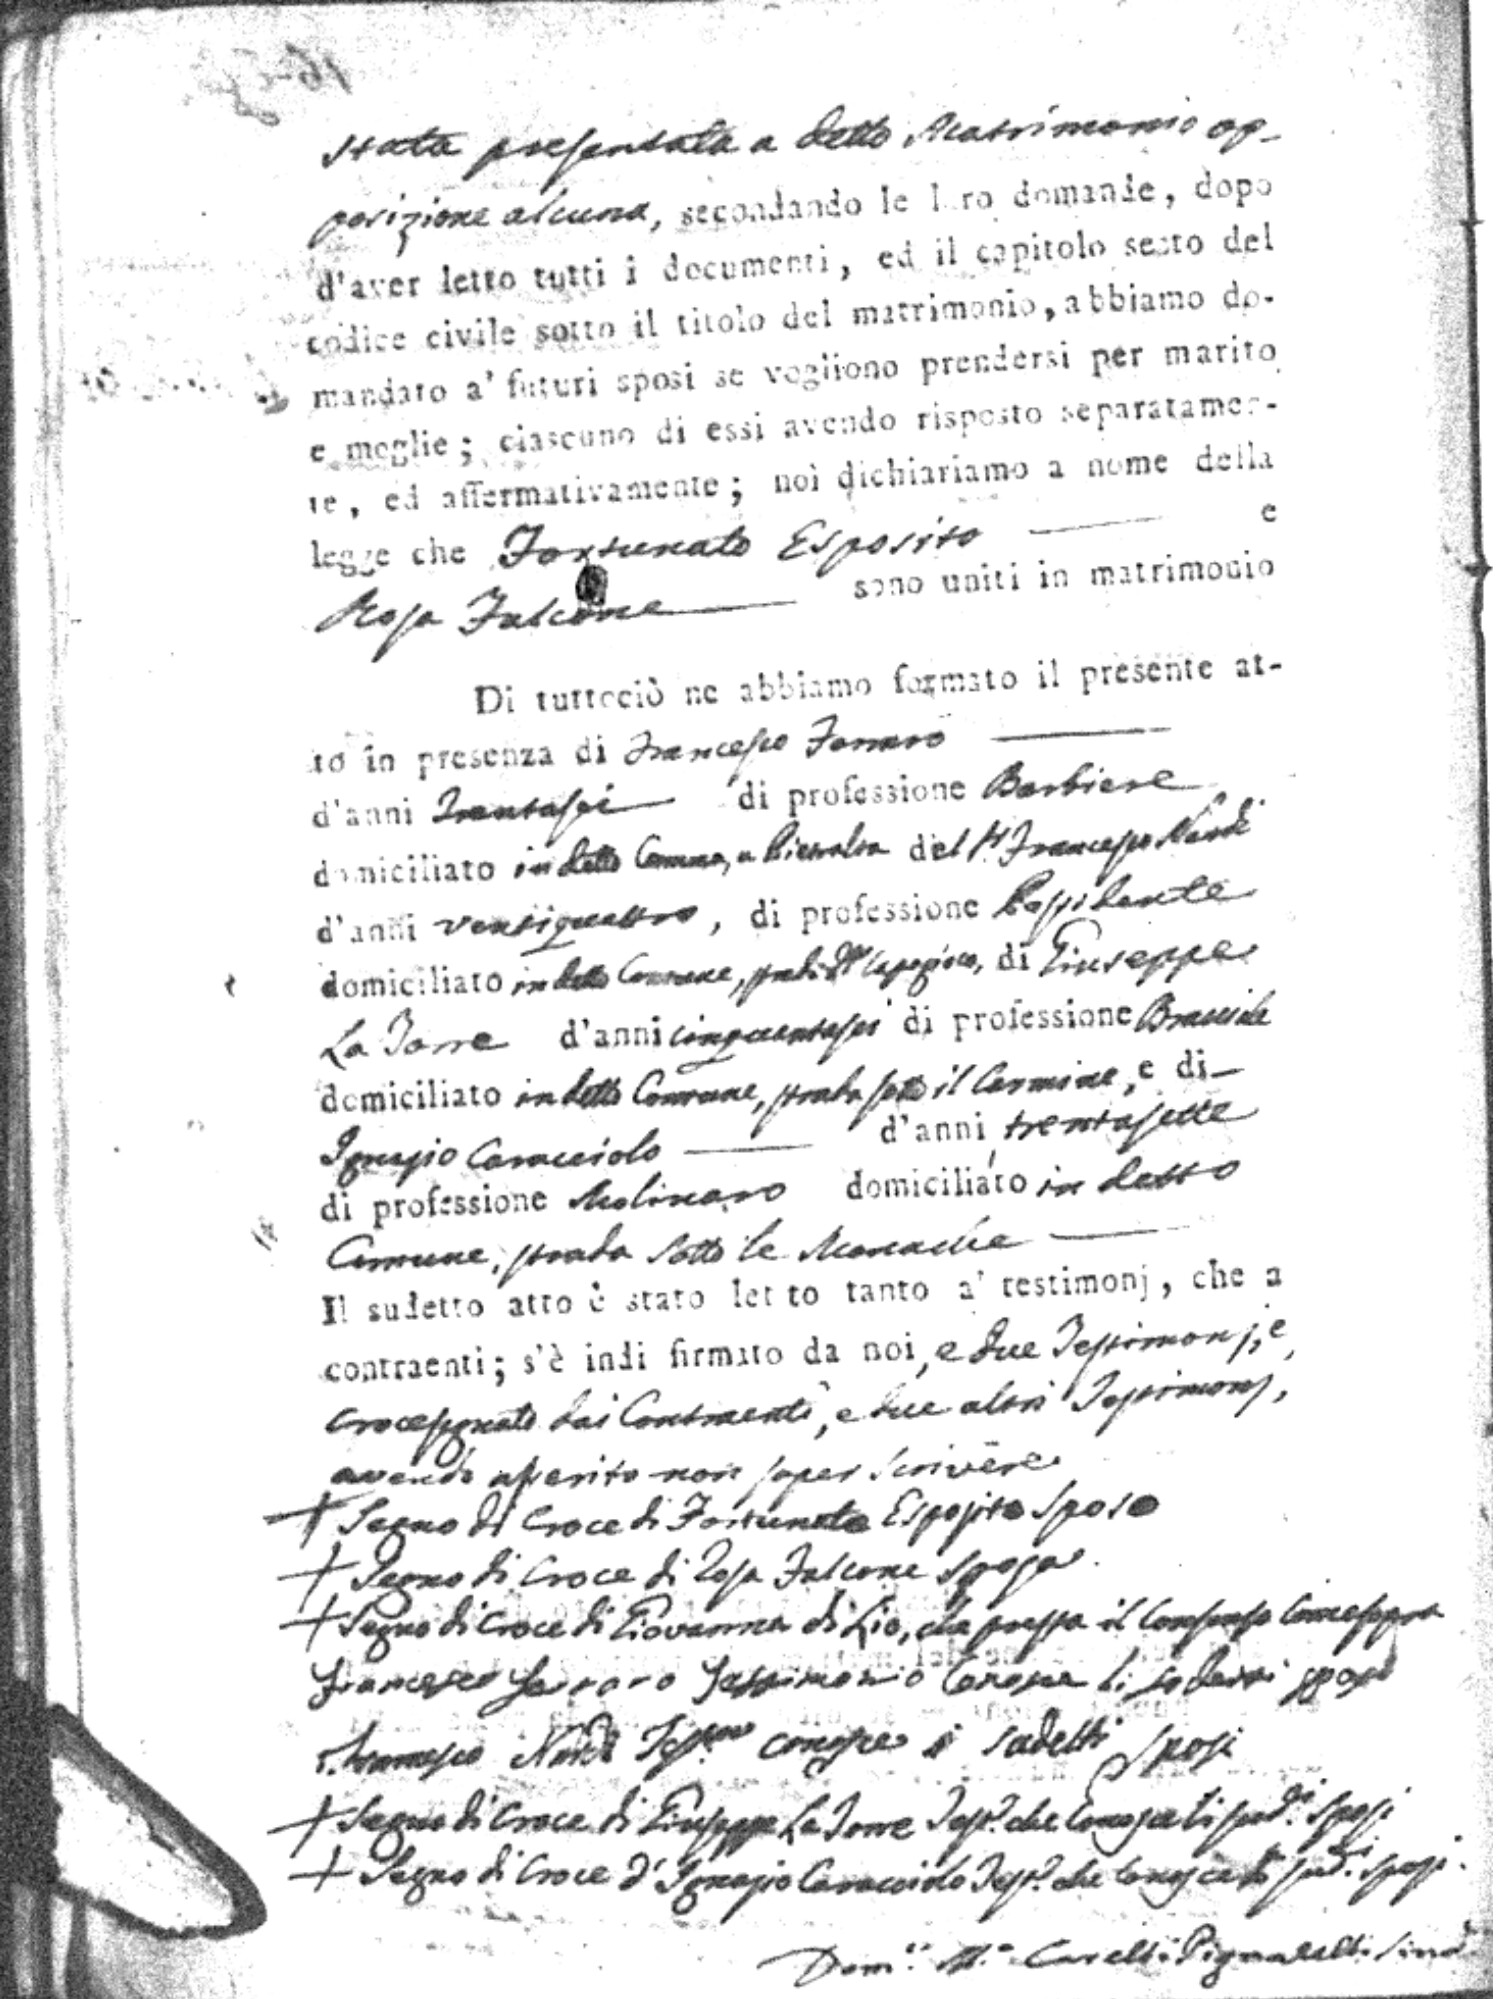 stata presentata a detto Matrimonio op-
posizione alcuna, secondando le loro domande, dopo
d'aver letto tutti i documenti, ed il capitolo sesto del
codice civile sotto il titolo del matrimonio, abbiamo do-
mandato a' futuri sposi se vogliono prendersi per marito
e moglie; ciascuno di essi avendo risposto separatamen-
te, ed affermativamente; noi dichiariamo a nome della
legge che Fortunato Esposito e
Rosa Falcone sono uniti in matrimonio
Di tuttociò ne abbiamo formato il presente at-
to in presenza di Francesco Ferraro
d'anni Trentasei di professione Barbiere
domiciliato in detto Comune, a Pietralta del Sr Francesco Nardi
d'anni ventiquattro, di professione Possidente
domiciliato in detto Comune, strada, di Giuseppe
La Torre d'anni cinquantasei di professione Bracciale
domiciliato in detto Comune, strada sotto il Carmine, e di
Ignazio Caracciolo d'anni trentasette
di professione Molinaro domiciliato in detto
Comune, strada sotto le Monache
Il sudetto atto è stato letto tanto a' testimonj, che a
contraenti; s'è indi firmato da noi, e due Testimonj, e
crocesegnato dai Contraenti, e due altri Testimonj,
avendo asserito non saper scrivere
+ Segno di Croce di Fortunato Esposito sposo
+ Segno di Croce di Rosa Falcone sposa
+ Segno di Croce di Giovanna di Lio, che pressa il Consenso Come sopra
Francesco Ferraro Testimonio Conosce li sudetti sposi
Francesco Nardi Testmo conosce i sudetti sposi
+ Segno di Croce di Giuseppe La Torre Test.º che Conosce li sud.i sposi
+ Segno di Croce d'Ignazio Caracciolo Test.º che Conosce li sud.i sposi.
Dom.co M.a Carelli Pignatelli Sind.